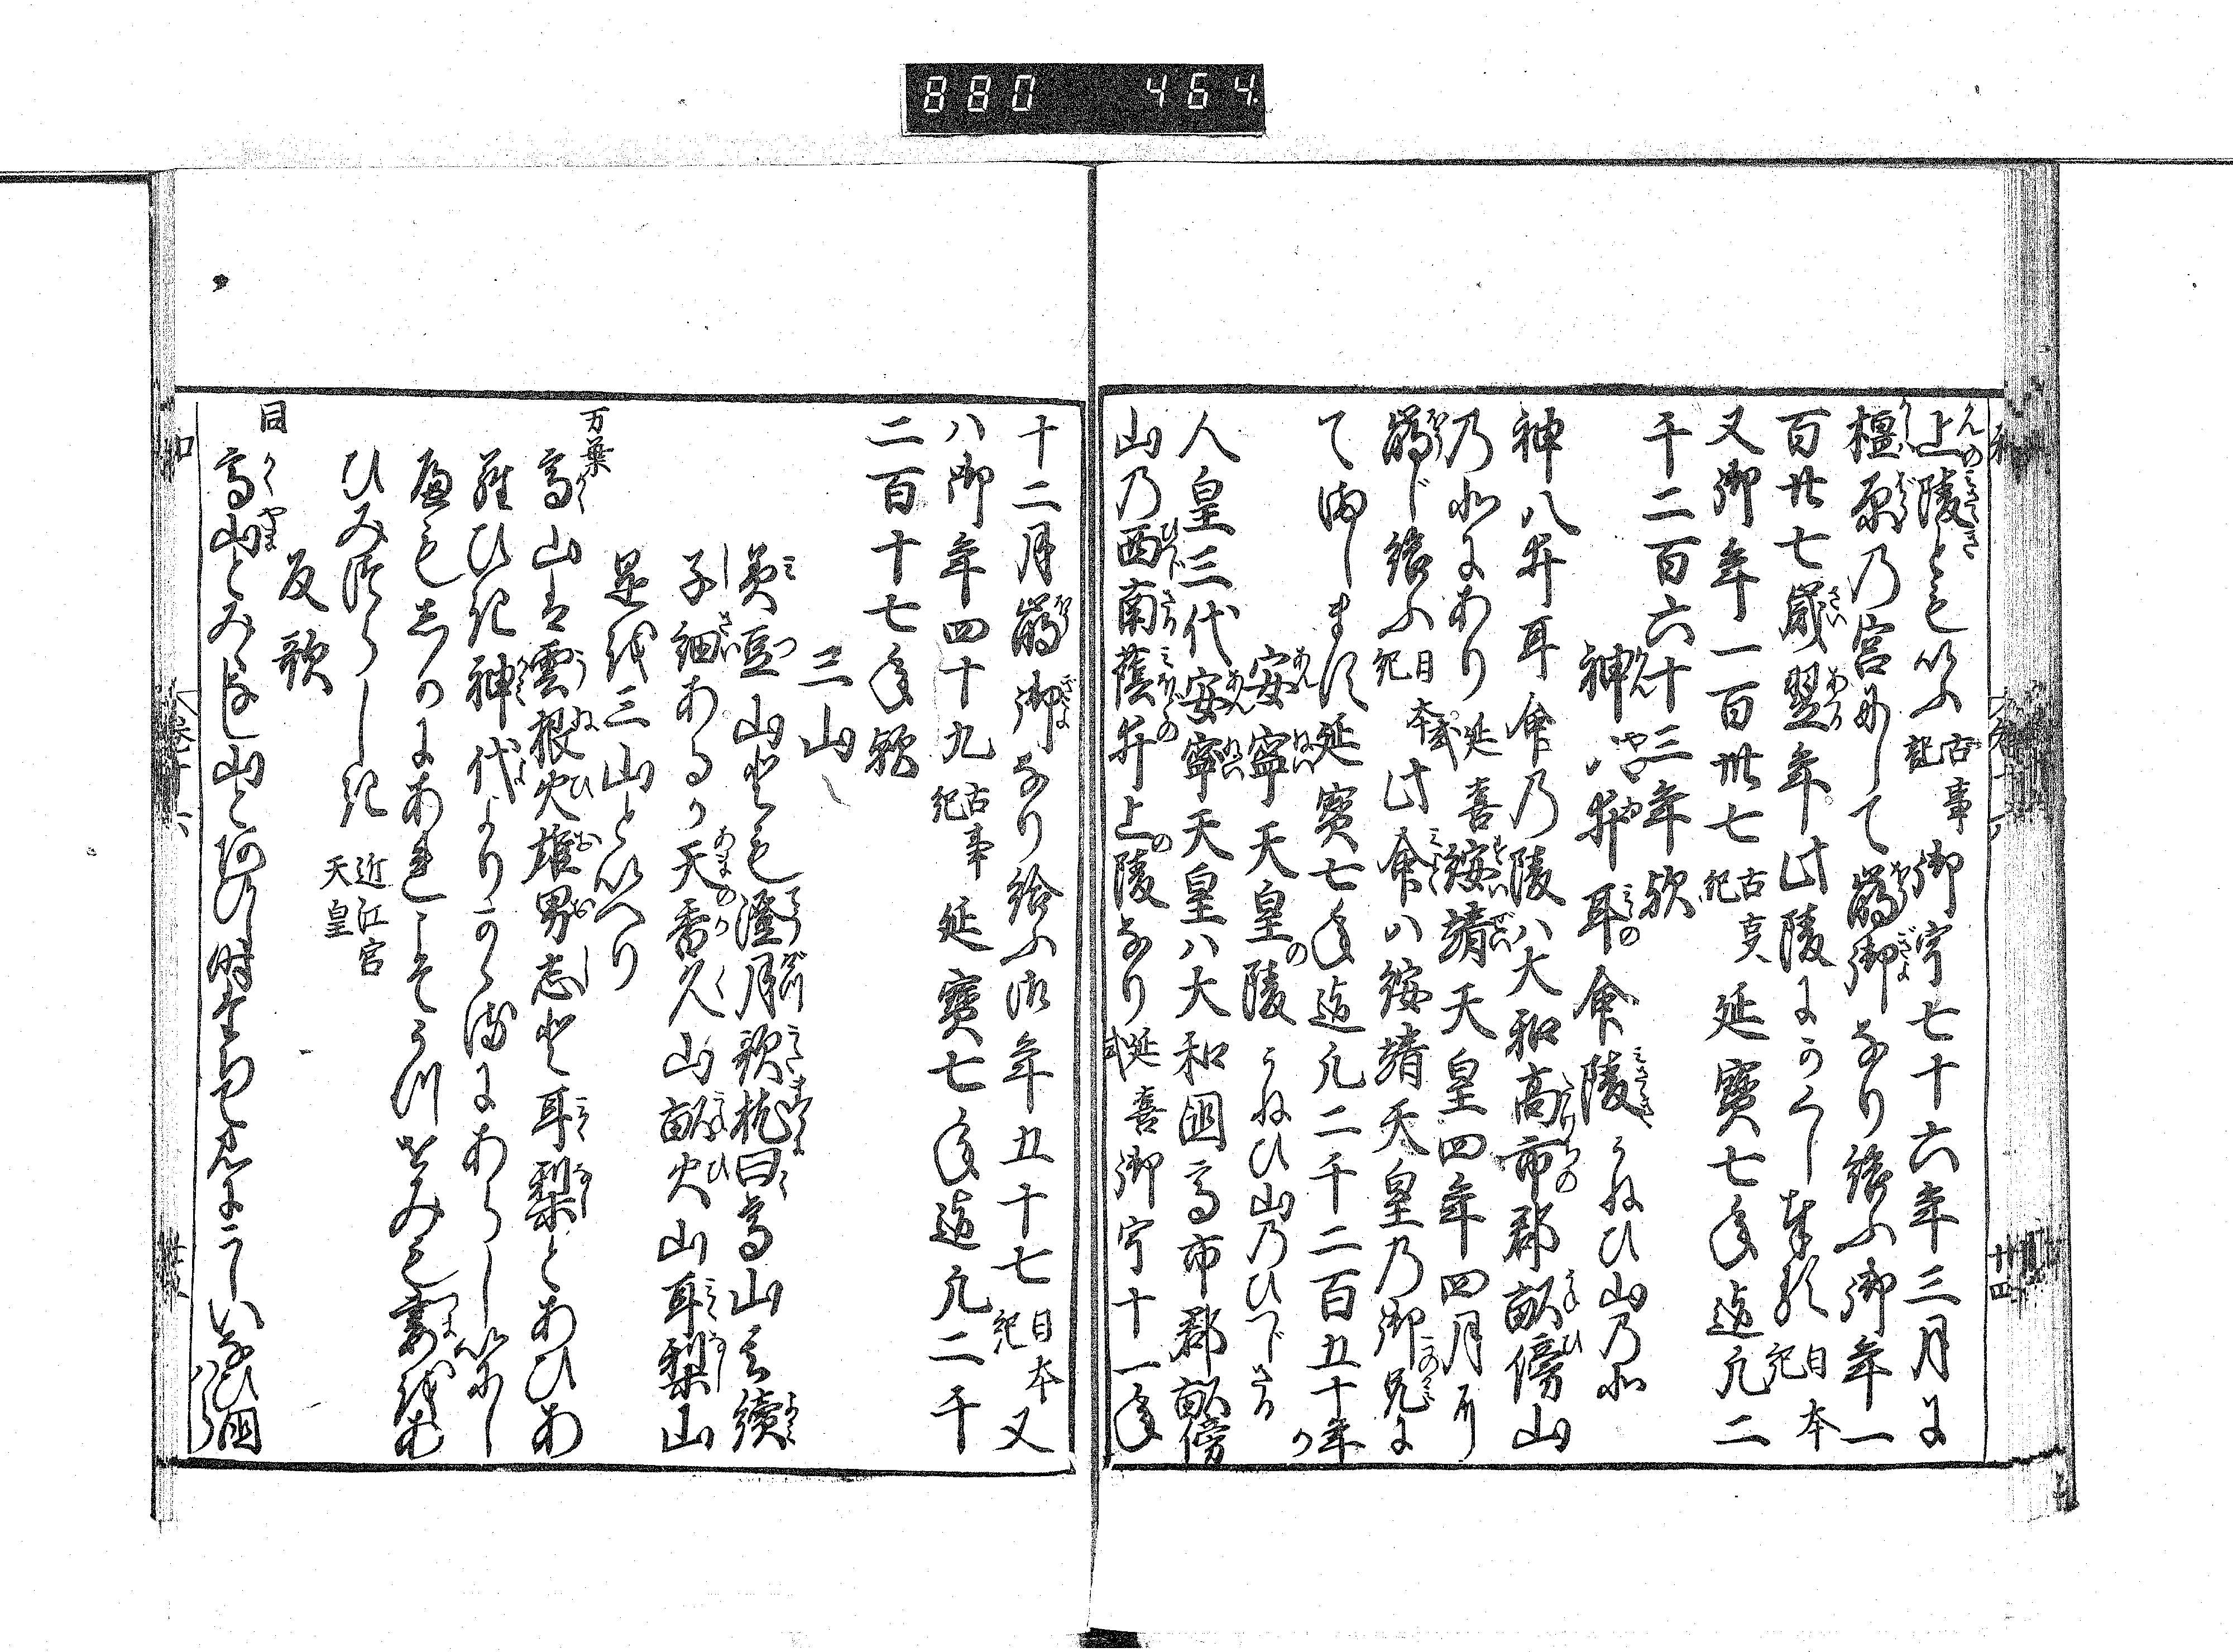 880 464
上陵とも いふ 古事記 御宇七十六年三月に
橿原乃宮にして 崩御なり給ふ御年一
百廿七歳翌年此陵にかくし奉る 日本紀
又御年一百卅七 古事紀 延寶七年迄凡二
千二百六十三年欤
神八井耳命陵 うねひ山乃北
神八井耳命乃陵ハ大和高市郡畝傍山
乃北にあり 延喜式 綏靖天皇四年四月に
崩じ給ふ 日本紀 此命ハ綏靖天皇乃御兄に
てまします 延寶七年迄凡二千二百五十年か
安寧天皇陵 うねひ山乃ひつじさる
人皇三代安寧天皇ハ大和國高市郡畝傍
山乃西南蔭井上陵なり 延喜式 御宇十一年
十二月崩御なり給ふ御年五十七 日本紀 又
八御年四十九 古事紀 延寶七年迄凡二千
二百十七年欤
三山
美豆山とも 澄月歌枕曰高山を續
子細あるか天香久山畝火山耳梨山
是を三山といへり
万葉 高山は雲根火雄男志と耳梨とあひあ
らひき神代よりかゝるにあらしいにし
へもしかにあれこそうつせみも妻をあ
ひみつらしき 近江宮天皇
反歌
同 高山とみゝなし山とあひし時たちて見にこしいなひ国
はら